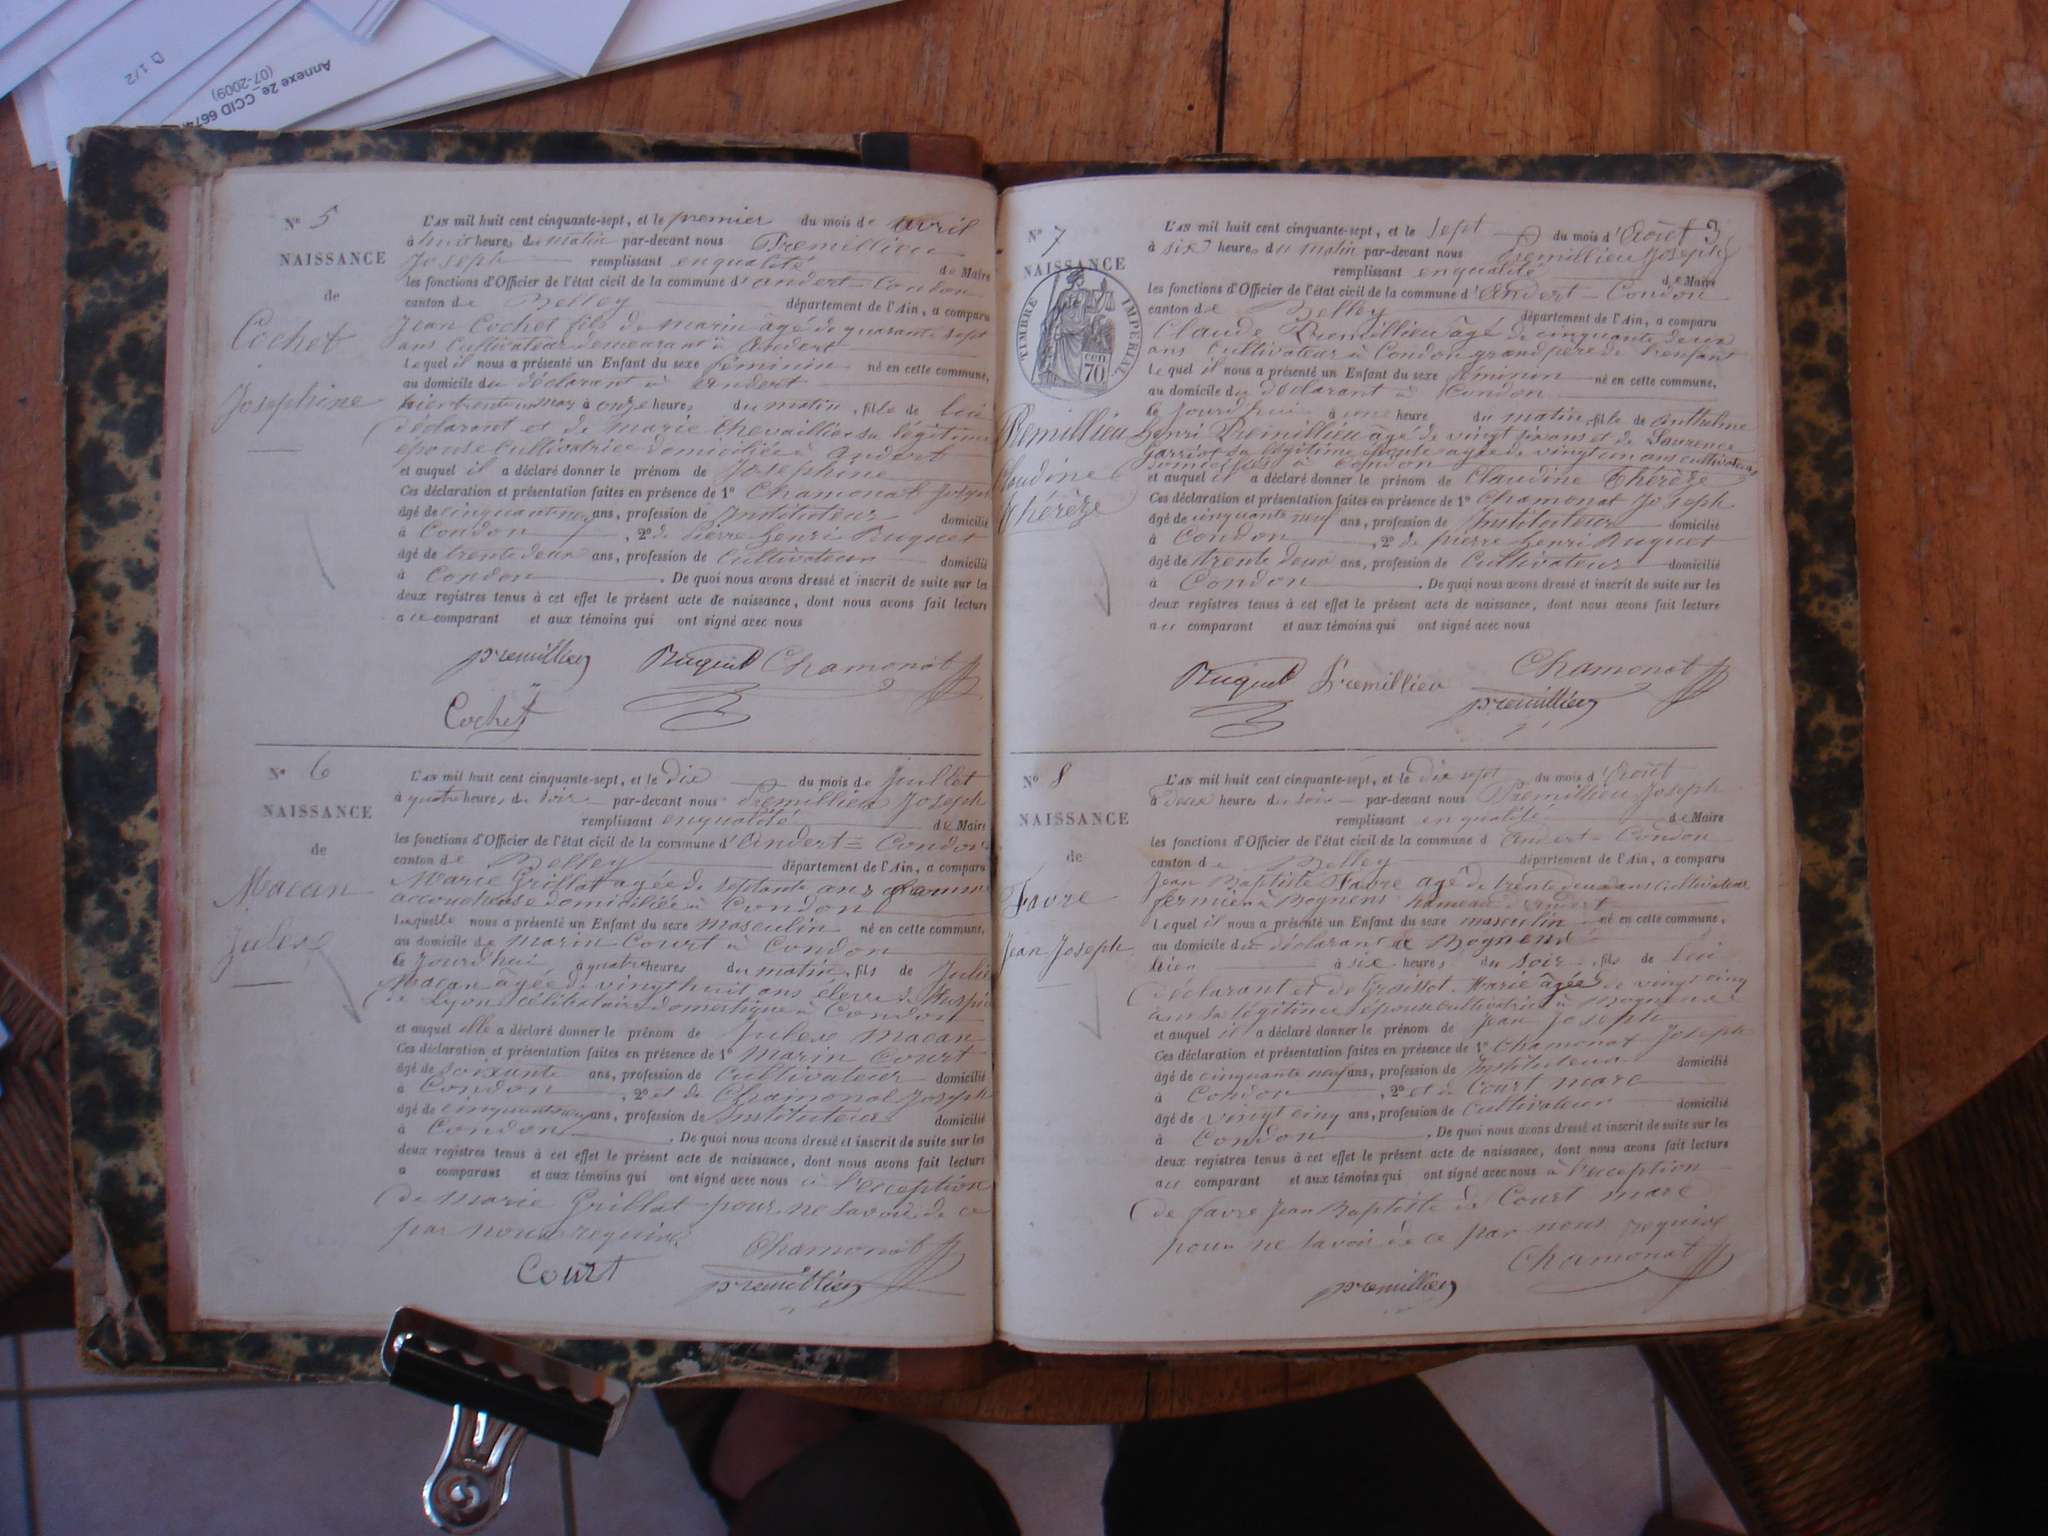 1/2
Annexe 2e_CCID 6674
(07-2009)
N° 5
NAISSANCE
de
Cochet
Josephine
L'AN mil huit cent cinquante-sept, et le premier du mois de avril
à huit heures du matin par-devant nous Premillieu
Joseph remplissant en qualité de Maire
les fonctions d'Officier de l'état civil de la commune d'andert-Condon
canton de Belley département de l'Ain, a comparu
Jean Cochet fils de marin âgé de quarante sept
ans cultivateur demeurant à Andert
Lequel il nous a présenté un Enfant du sexe féminin né en cette commune,
au domicile du déclarant à andert
hier trente un mars à onze heures du matin, fille de lui
déclarant et de marie thevaillier sa légitime
épouse cultivatrice domiciliée à andert
et auquel il a déclaré donner le prénom de Josephine
Ces déclaration et présentation faites en présence de 1° Chamonat Joseph
âgé de cinquante neuf ans, profession de Instituteur domicilié
à Condon, 2° de Pierre henri Ruguet
âgé de trente deux ans, profession de Cultivateur domicilié
à Condon. De quoi nous avons dressé et inscrit de suite sur les
deux registres tenus à cet effet le présent acte de naissance, dont nous avons fait lecture
au comparant et aux témoins qui ont signé avec nous
premillieu Ruguet Chamonat
Cochet
N° 6
NAISSANCE
de
Macan
Julese
L'AN mil huit cent cinquante-sept, et le dix du mois de Juillet
à quatre heures du soir par-devant nous Premillieu Joseph
remplissant en qualité de Maire
les fonctions d'Officier de l'état civil de la commune d'Andert=Condon
canton de Belley département de l'Ain, a comparu
Marie Grillat agée de septante ans
accoucheuse domiciliée à Condon
Laquelle nous a présenté un Enfant du sexe masculin né en cette commune,
au domicile de marin Court à Condon
ce Jourdhui à quatre heures du matin, fils de Julie
Macan âgée de vingt huit ans éleve de
de Lyon célibataire domestique à Condon
et auquel elle a déclaré donner le prénom de Julese Macan
Ces déclaration et présentation faites en présence de 1° Marin Court
âgé de soixante ans, profession de Cultivateur domicilié
à Condon, 2° et de Chamonat Joseph
âgé de cinquante neuf ans, profession de Instituteur domicilié
à Condon. De quoi nous avons dressé et inscrit de suite sur les
deux registres tenus à cet effet le présent acte de naissance, dont nous avons fait lecture
a comparant et aux témoins qui ont signé avec nous à l'exception
de marie Grillat pour ne savoir de ce
par nous requise
Chamonat
Court premillieu
N° 7
NAISSANCE
TIMBRE IMPERIAL
cen 70
Premillieu
Claudine
thérèze
L'AN mil huit cent cinquante-sept, et le sept du mois d'Août 3
à six heures du matin par-devant nous Premillieu Joseph
remplissant en qualité de Maire
les fonctions d'Officier de l'état civil de la commune d'Andert-Condon
canton de Belley département de l'Ain, a comparu
Claude Premillieu âgé de cinquante deux
ans Cultivateur à Condon grand père de l'enfant
Lequel il nous a présenté un Enfant du sexe féminin né en cette commune,
au domicile du déclarant à Condon
ce Jourdhui à une heure du matin, fille de Anthelme
henri Premillieu âgé de vingt six ans et de Laurence
sa légitime épouse agée de vingt cinq ans cultivateurs
domiciliés à Condon
et auquel il a déclaré donner le prénom de Claudine thérèze
Ces déclaration et présentation faites en présence de 1° Chamonat Joseph
âgé de cinquante neuf ans, profession de Instituteur domicilié
à Condon, 2° de pierre henri Ruguet
âgé de trente deux ans, profession de Cultivateur domicilié
à Condon. De quoi nous avons dressé et inscrit de suite sur les
deux registres tenus à cet effet le présent acte de naissance, dont nous avons fait lecture
au comparant et aux témoins qui ont signé avec nous
Ruguet Premillieu Chamonat
premillieu
N° 8
NAISSANCE
de
Favre
Jean Joseph
L'AN mil huit cent cinquante-sept, et le dix sept du mois d'Août
à deux heures du soir par-devant nous Premillieu Joseph
remplissant en qualité de Maire
les fonctions d'Officier de l'état civil de la commune d Andert-Condon
canton de Belley département de l'Ain, a comparu
Jean Baptiste Favre agé de trente deux ans cultivateur
fermier à Bognens hameau d'andert
Lequel il nous a présenté un Enfant du sexe masculin né en cette commune,
au domicile du déclarant à Bognens
hier à six heures du soir, fils de lui
déclarant et de Groissot Marie âgée de vingt cinq
ans sa légitime épouse cultivatrice à Bognens
et auquel il a déclaré donner le prénom de Jean Joseph
Ces déclaration et présentation faites en présence de 1° Chamonat Joseph
âgé de cinquante neuf ans, profession de Instituteur domicilié
à Condon, 2° et de Court marc
âgé de vingt cinq ans, profession de Cultivateur domicilié
à Condon. De quoi nous avons dressé et inscrit de suite sur les
deux registres tenus à cet effet le présent acte de naissance, dont nous avons fait lecture
au comparant et aux témoins qui ont signé avec nous à l'exception
de favre Jean Baptiste de Court marc
pour ne savoir de ce par nous requise
Chamonat
premillieu